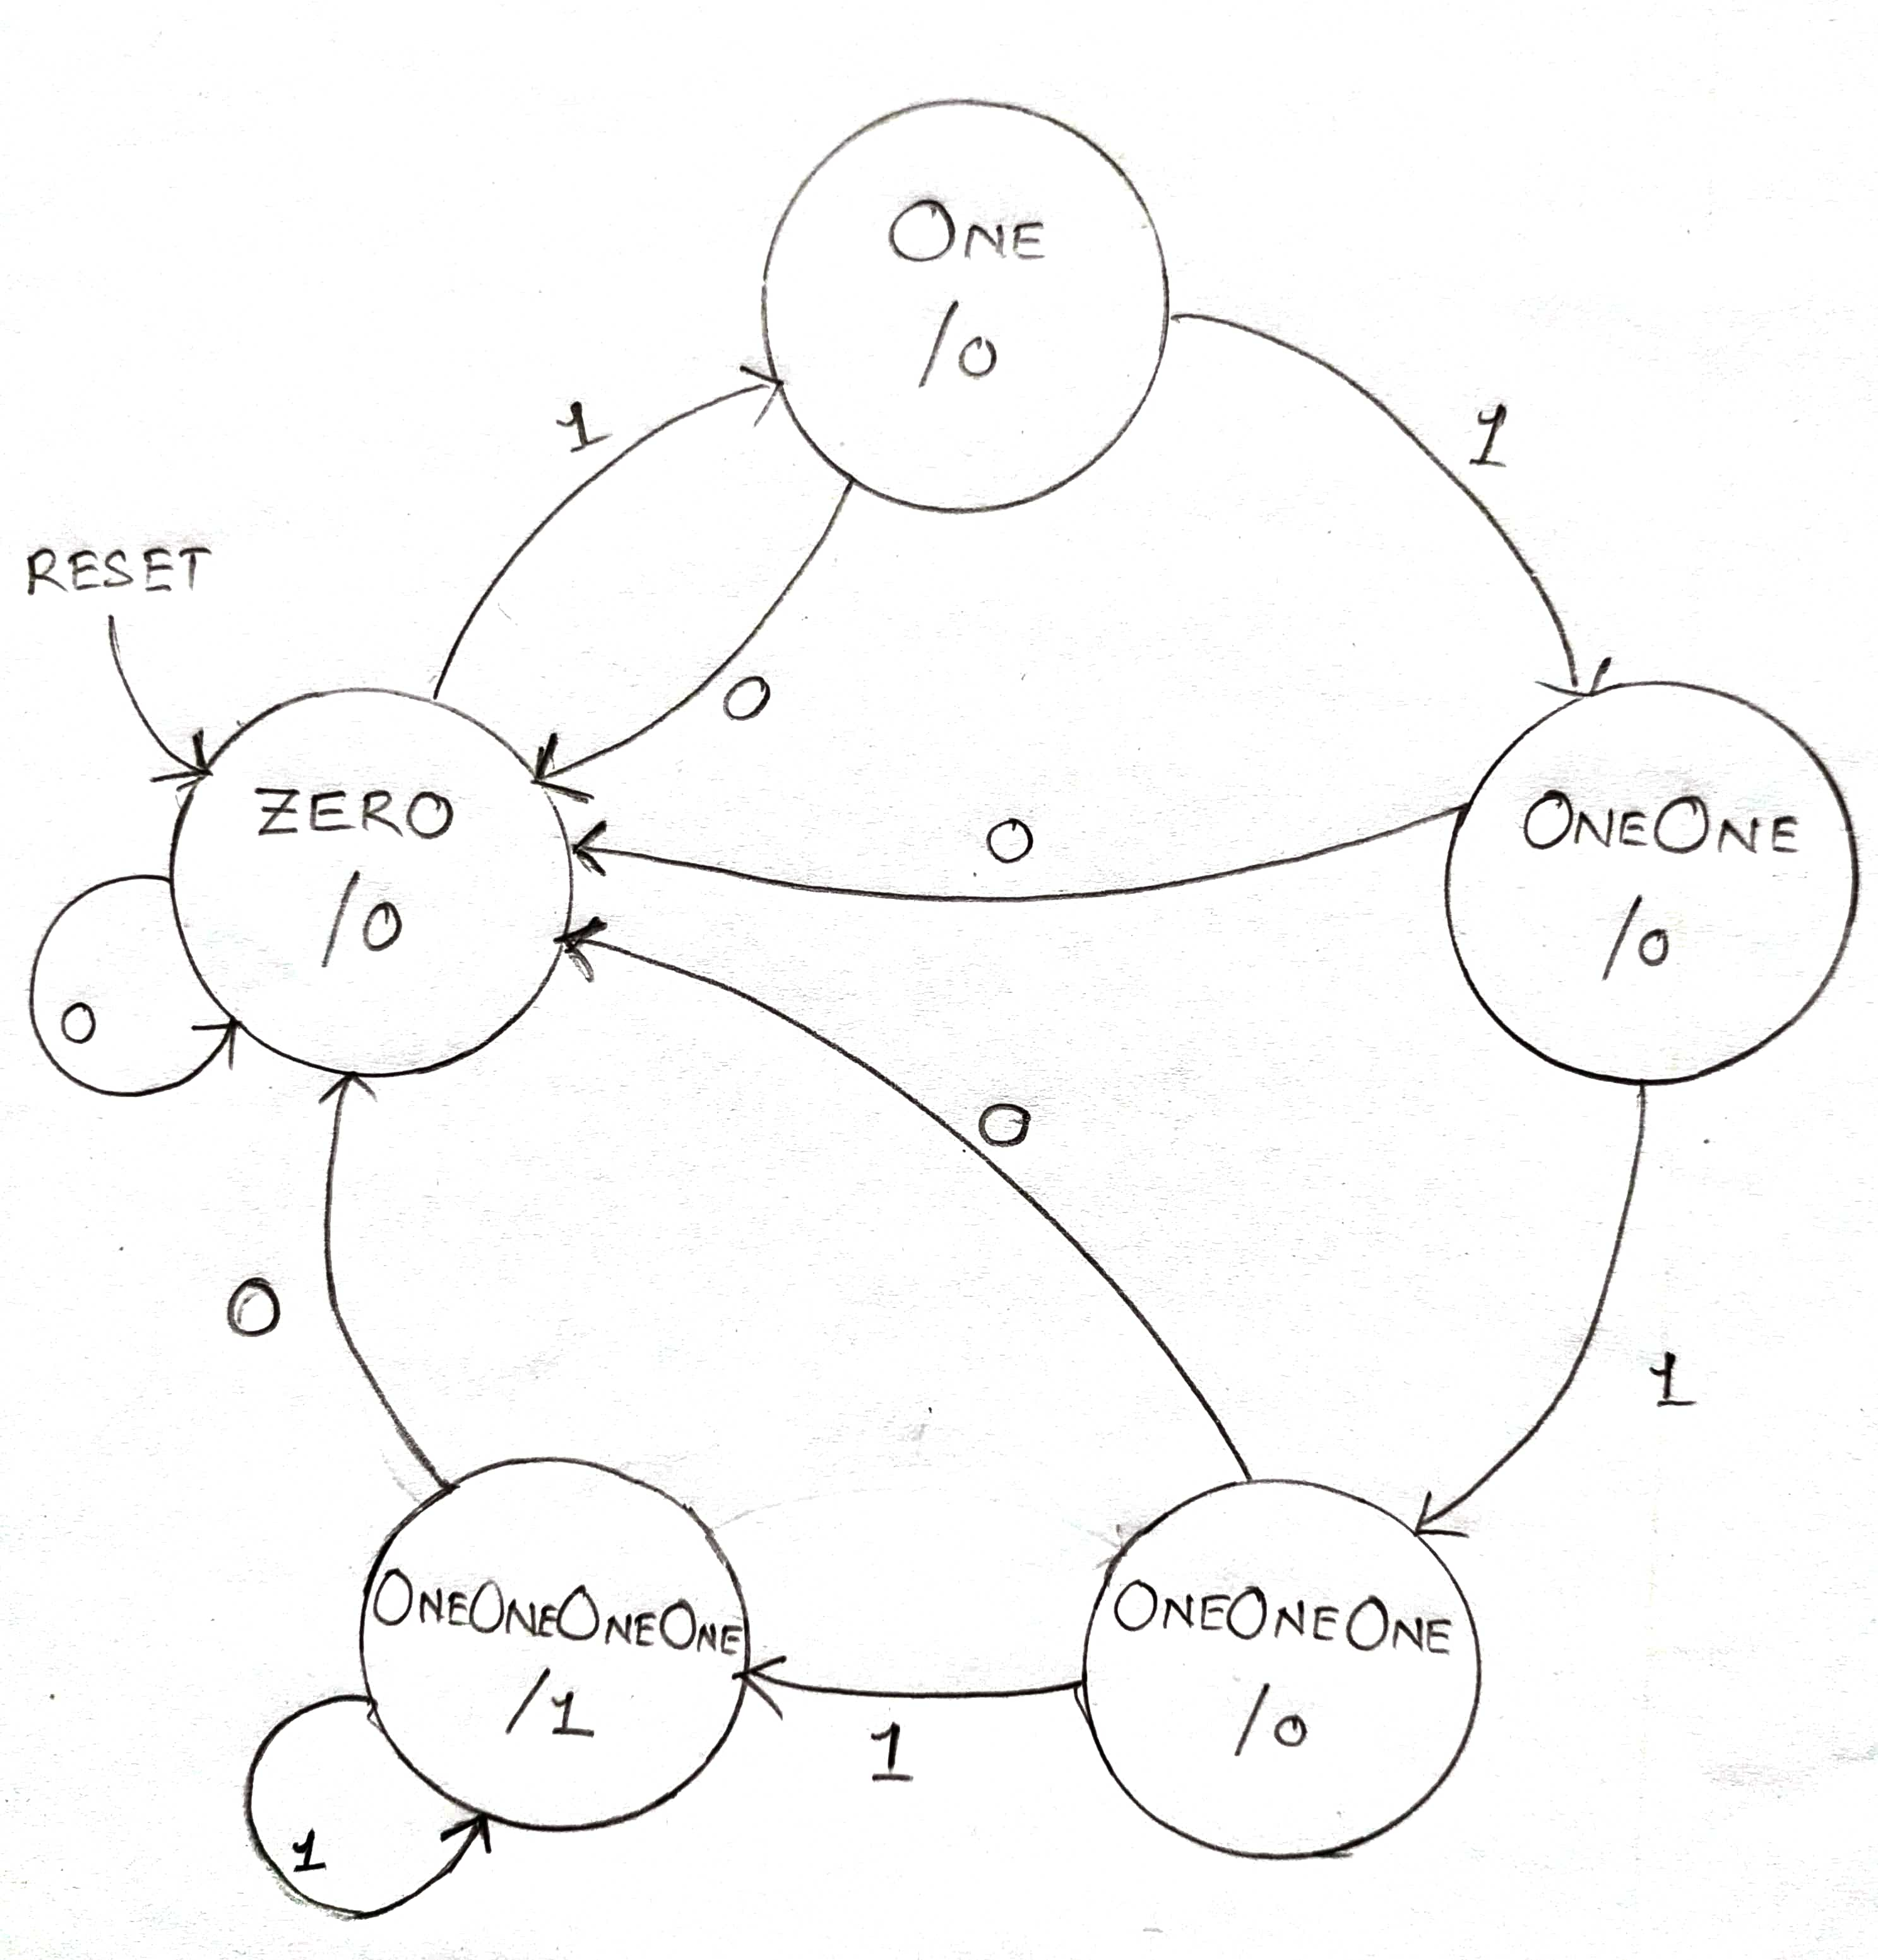 ONE
/0
1
1
RESET
0
ZERO
/0
0
ONEONE
/0
0
0
0
1
ONEONEONEONE
/1
ONEONEONE
/0
1
1